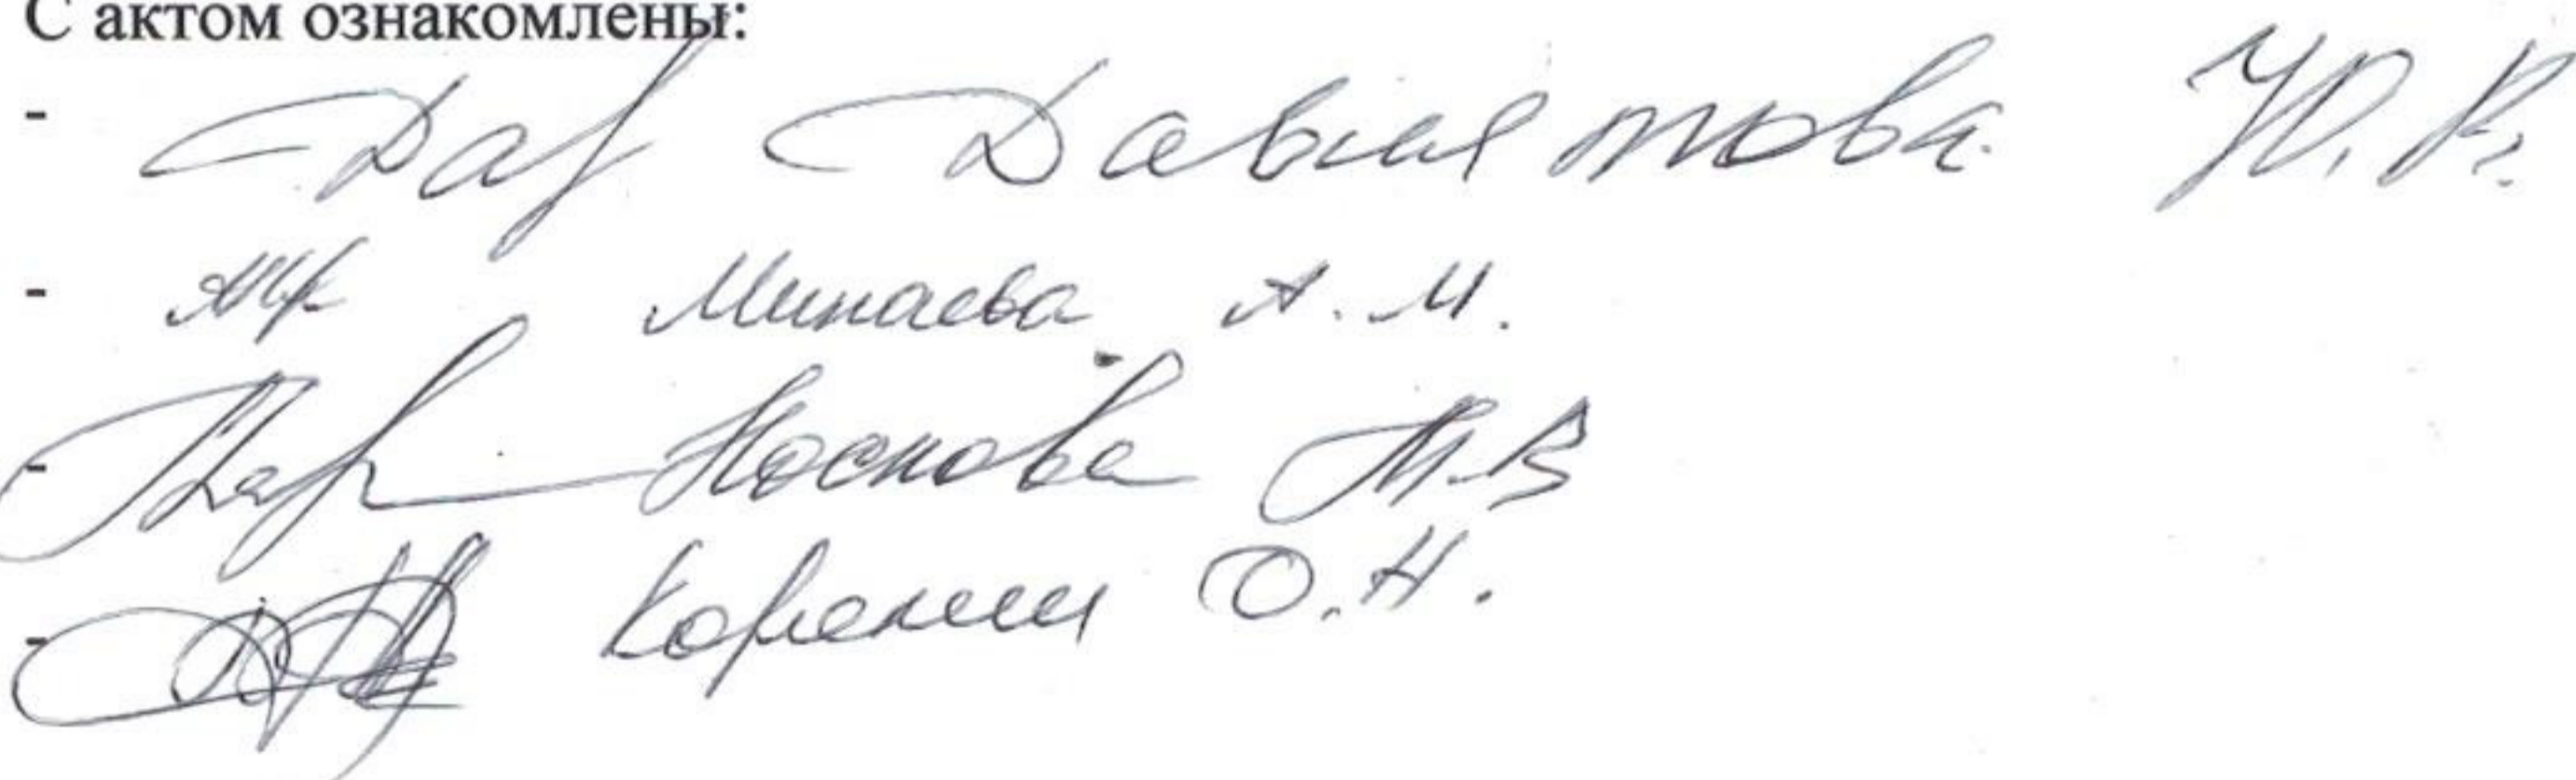 С актом ознакомлены:
- Давлятова Ю. Р.
- Минаева А. М.
- Носкова М. В
- Корелин О. Н.